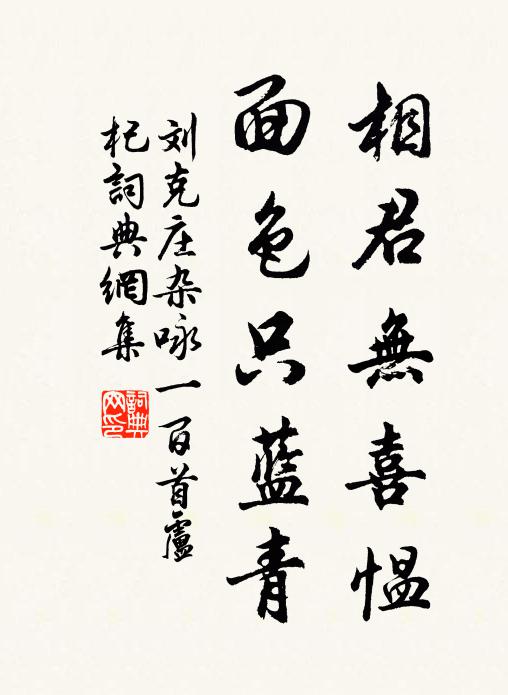 相君無喜愠
面色只藍青
刘克庄杂咏一百首盧
杞詞典網集
詞典網印